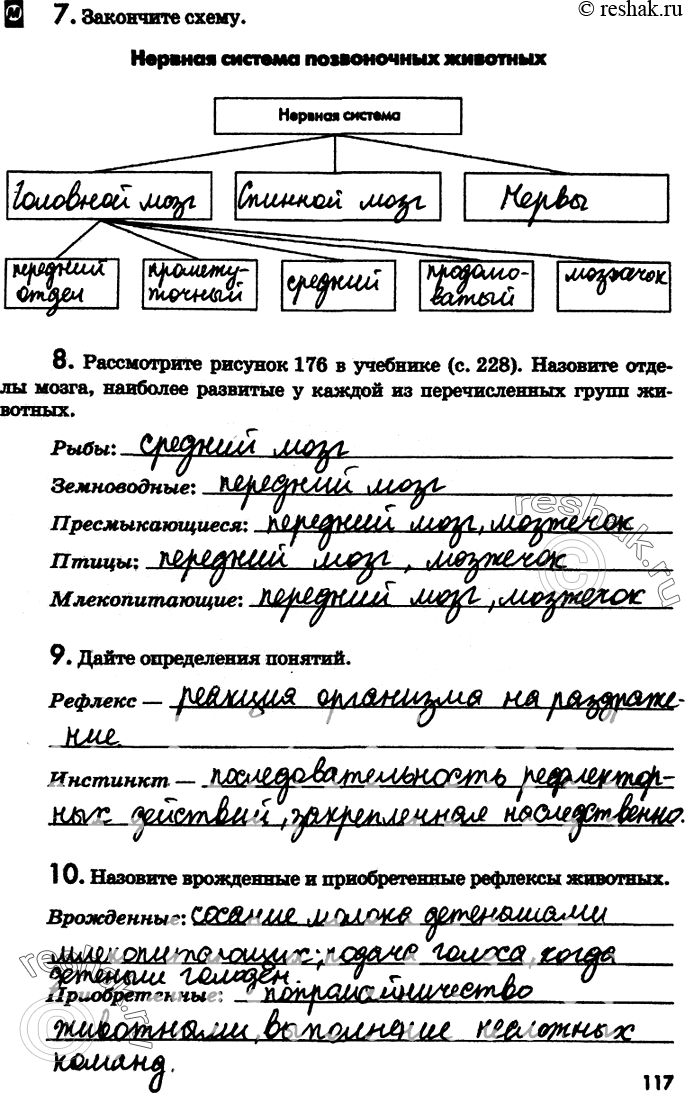 © reshak.ru
7. Закончите схему.
Нервная система позвоночных животных
Нервная система
Головной мозг Спинной мозг Нервы
передний отдел промежу-точный средний продолго-ватый мозжачок
8. Рассмотрите рисунок 176 в учебнике (с. 228). Назовите отде-
лы мозга, наиболее развитые у каждой из перечисленных групп жи-
вотных.
Рыбы: средний мозг
Земноводные: передний мозг
Пресмыкающиеся: передний мозг, мозжечок
Птицы: передний мозг, мозжечок
Млекопитающие: передний мозг, мозжечок
9. Дайте определения понятий.
Рефлекс — реакция организма на раздраже-
ние.
Инстинкт — последовательность рефлектор-
ных действий, закрепленная наследственно.
10. Назовите врожденные и приобретенные рефлексы животных.
Врожденные: сосание молока детенышами
млекопитающих; подача голоса, когда
детеныш голоден.
Приобретенные: попрошайничество
животными, выполнение несложных
команд.
117
reshak.ru ©
reshak.ru ©